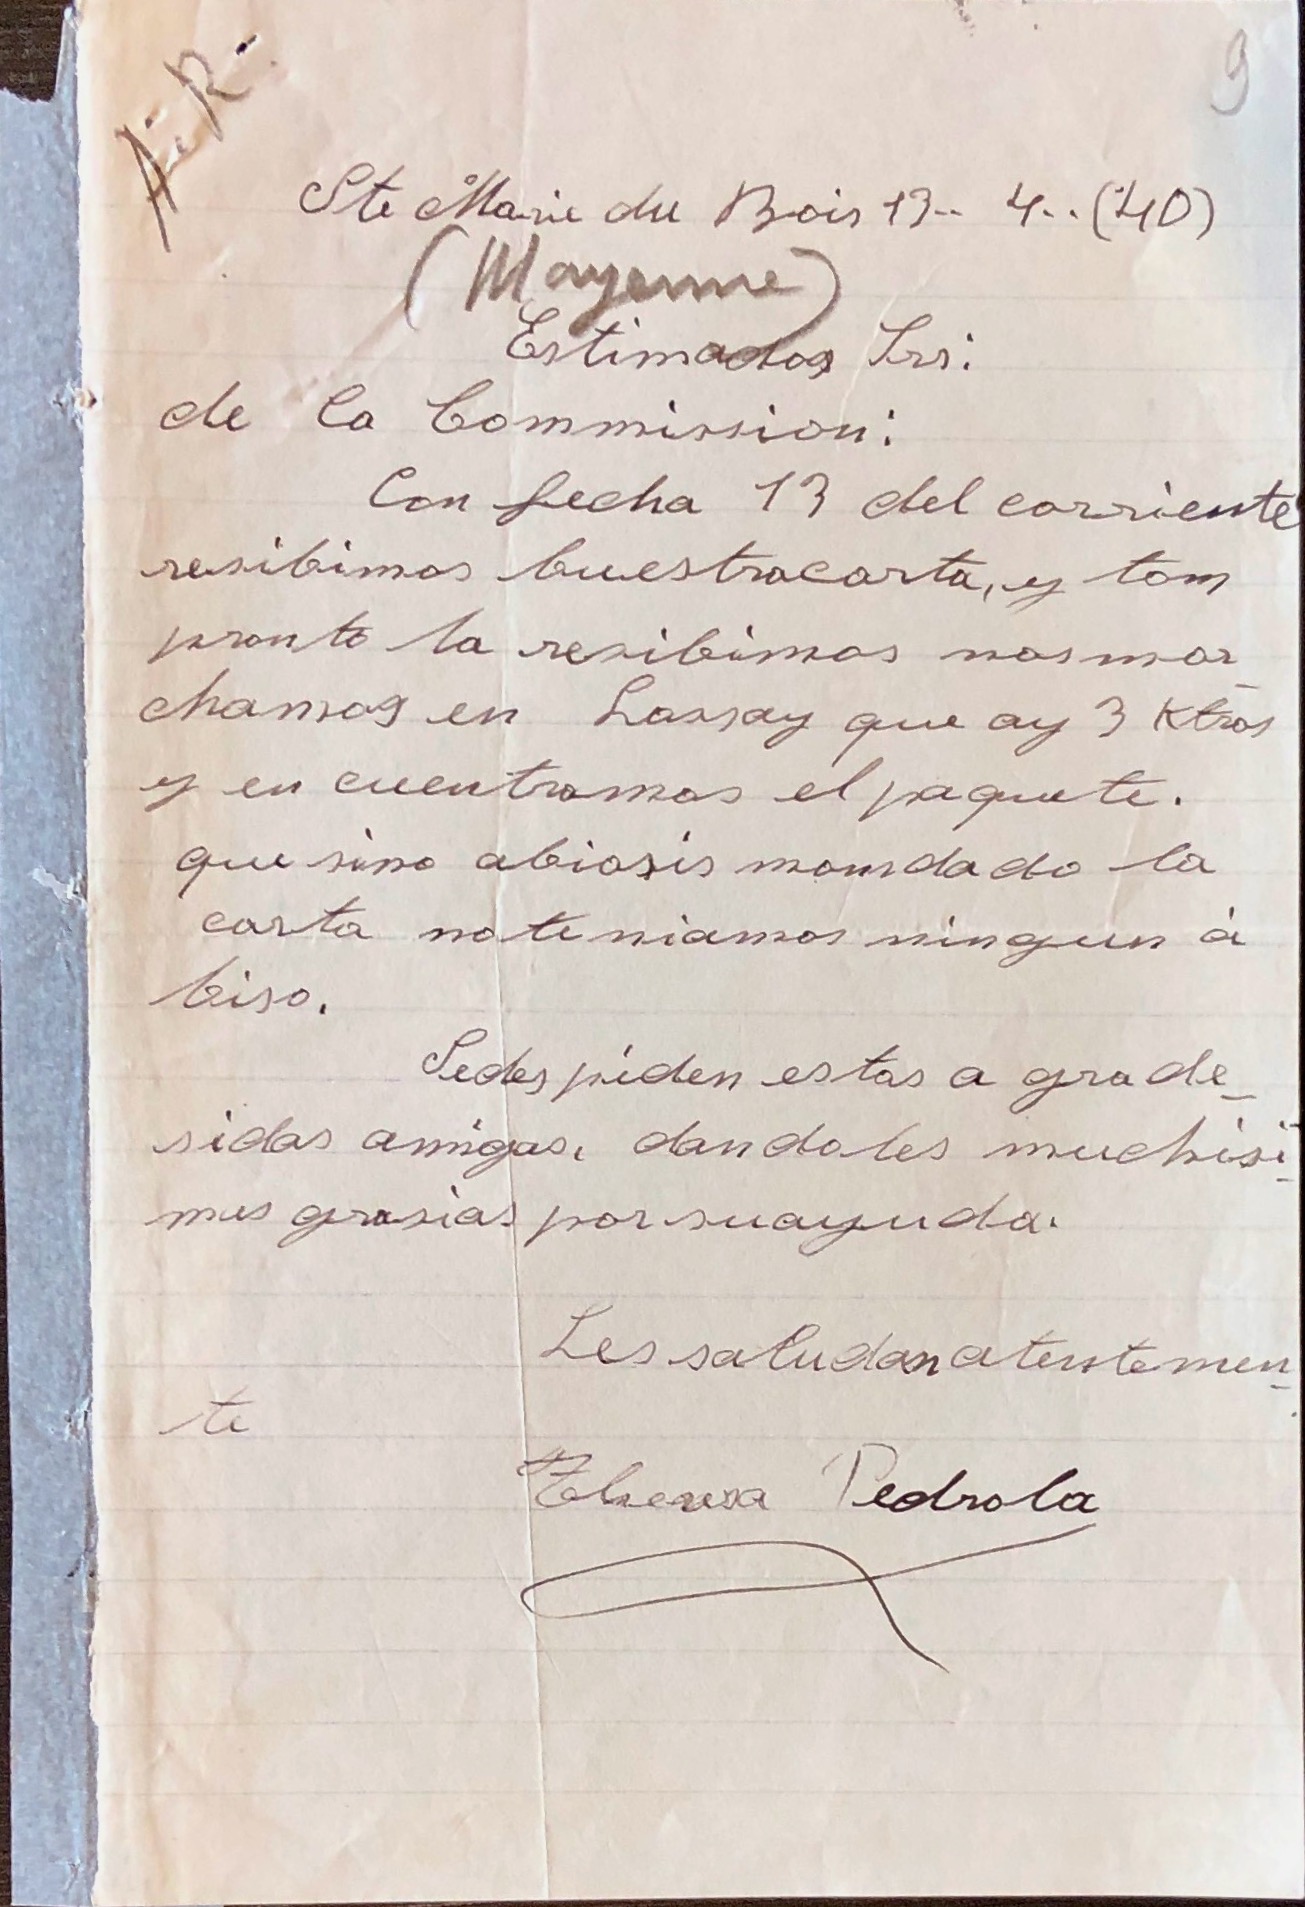 9
A.R.-
Ste Marie du Bois 13.. 4.. (40)
(Mayenne)
Estimados Srs:
de la Commission:
Con fecha 13 del corriente
resibimos buestracarta, y tom
pronto la resibimos nosmar
chamos en Lassay que ay 3 Ktros
y en cuentramos el paquete.
que sino abiasis mandado la
carta noteniamos ningun á
biso.
Sedes piden estas a grade_
sidas amigas, dandoles muchisi_
mas grasias porsuayuda.
Les saludan atentemen_
te
Pedrola